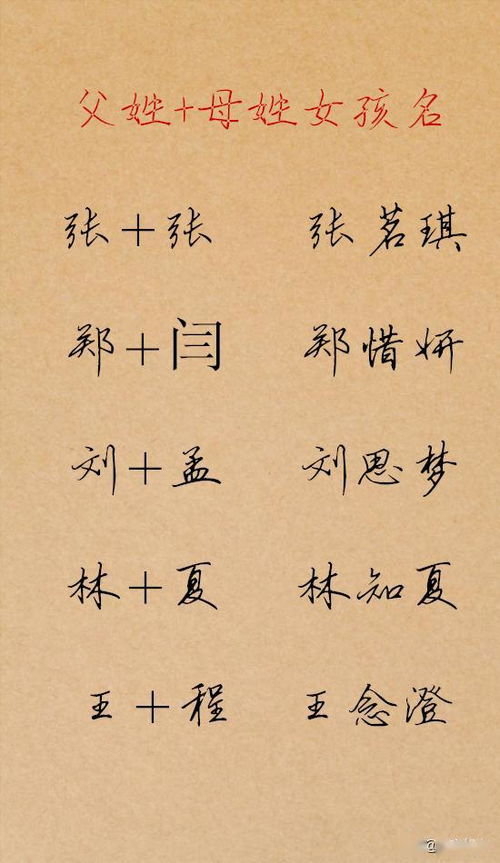 父姓+母姓女孩名
张+张 张茗琪
郑+闫 郑惜妍
刘+孟 刘思梦
林+夏 林知夏
王+程 王念澄
@